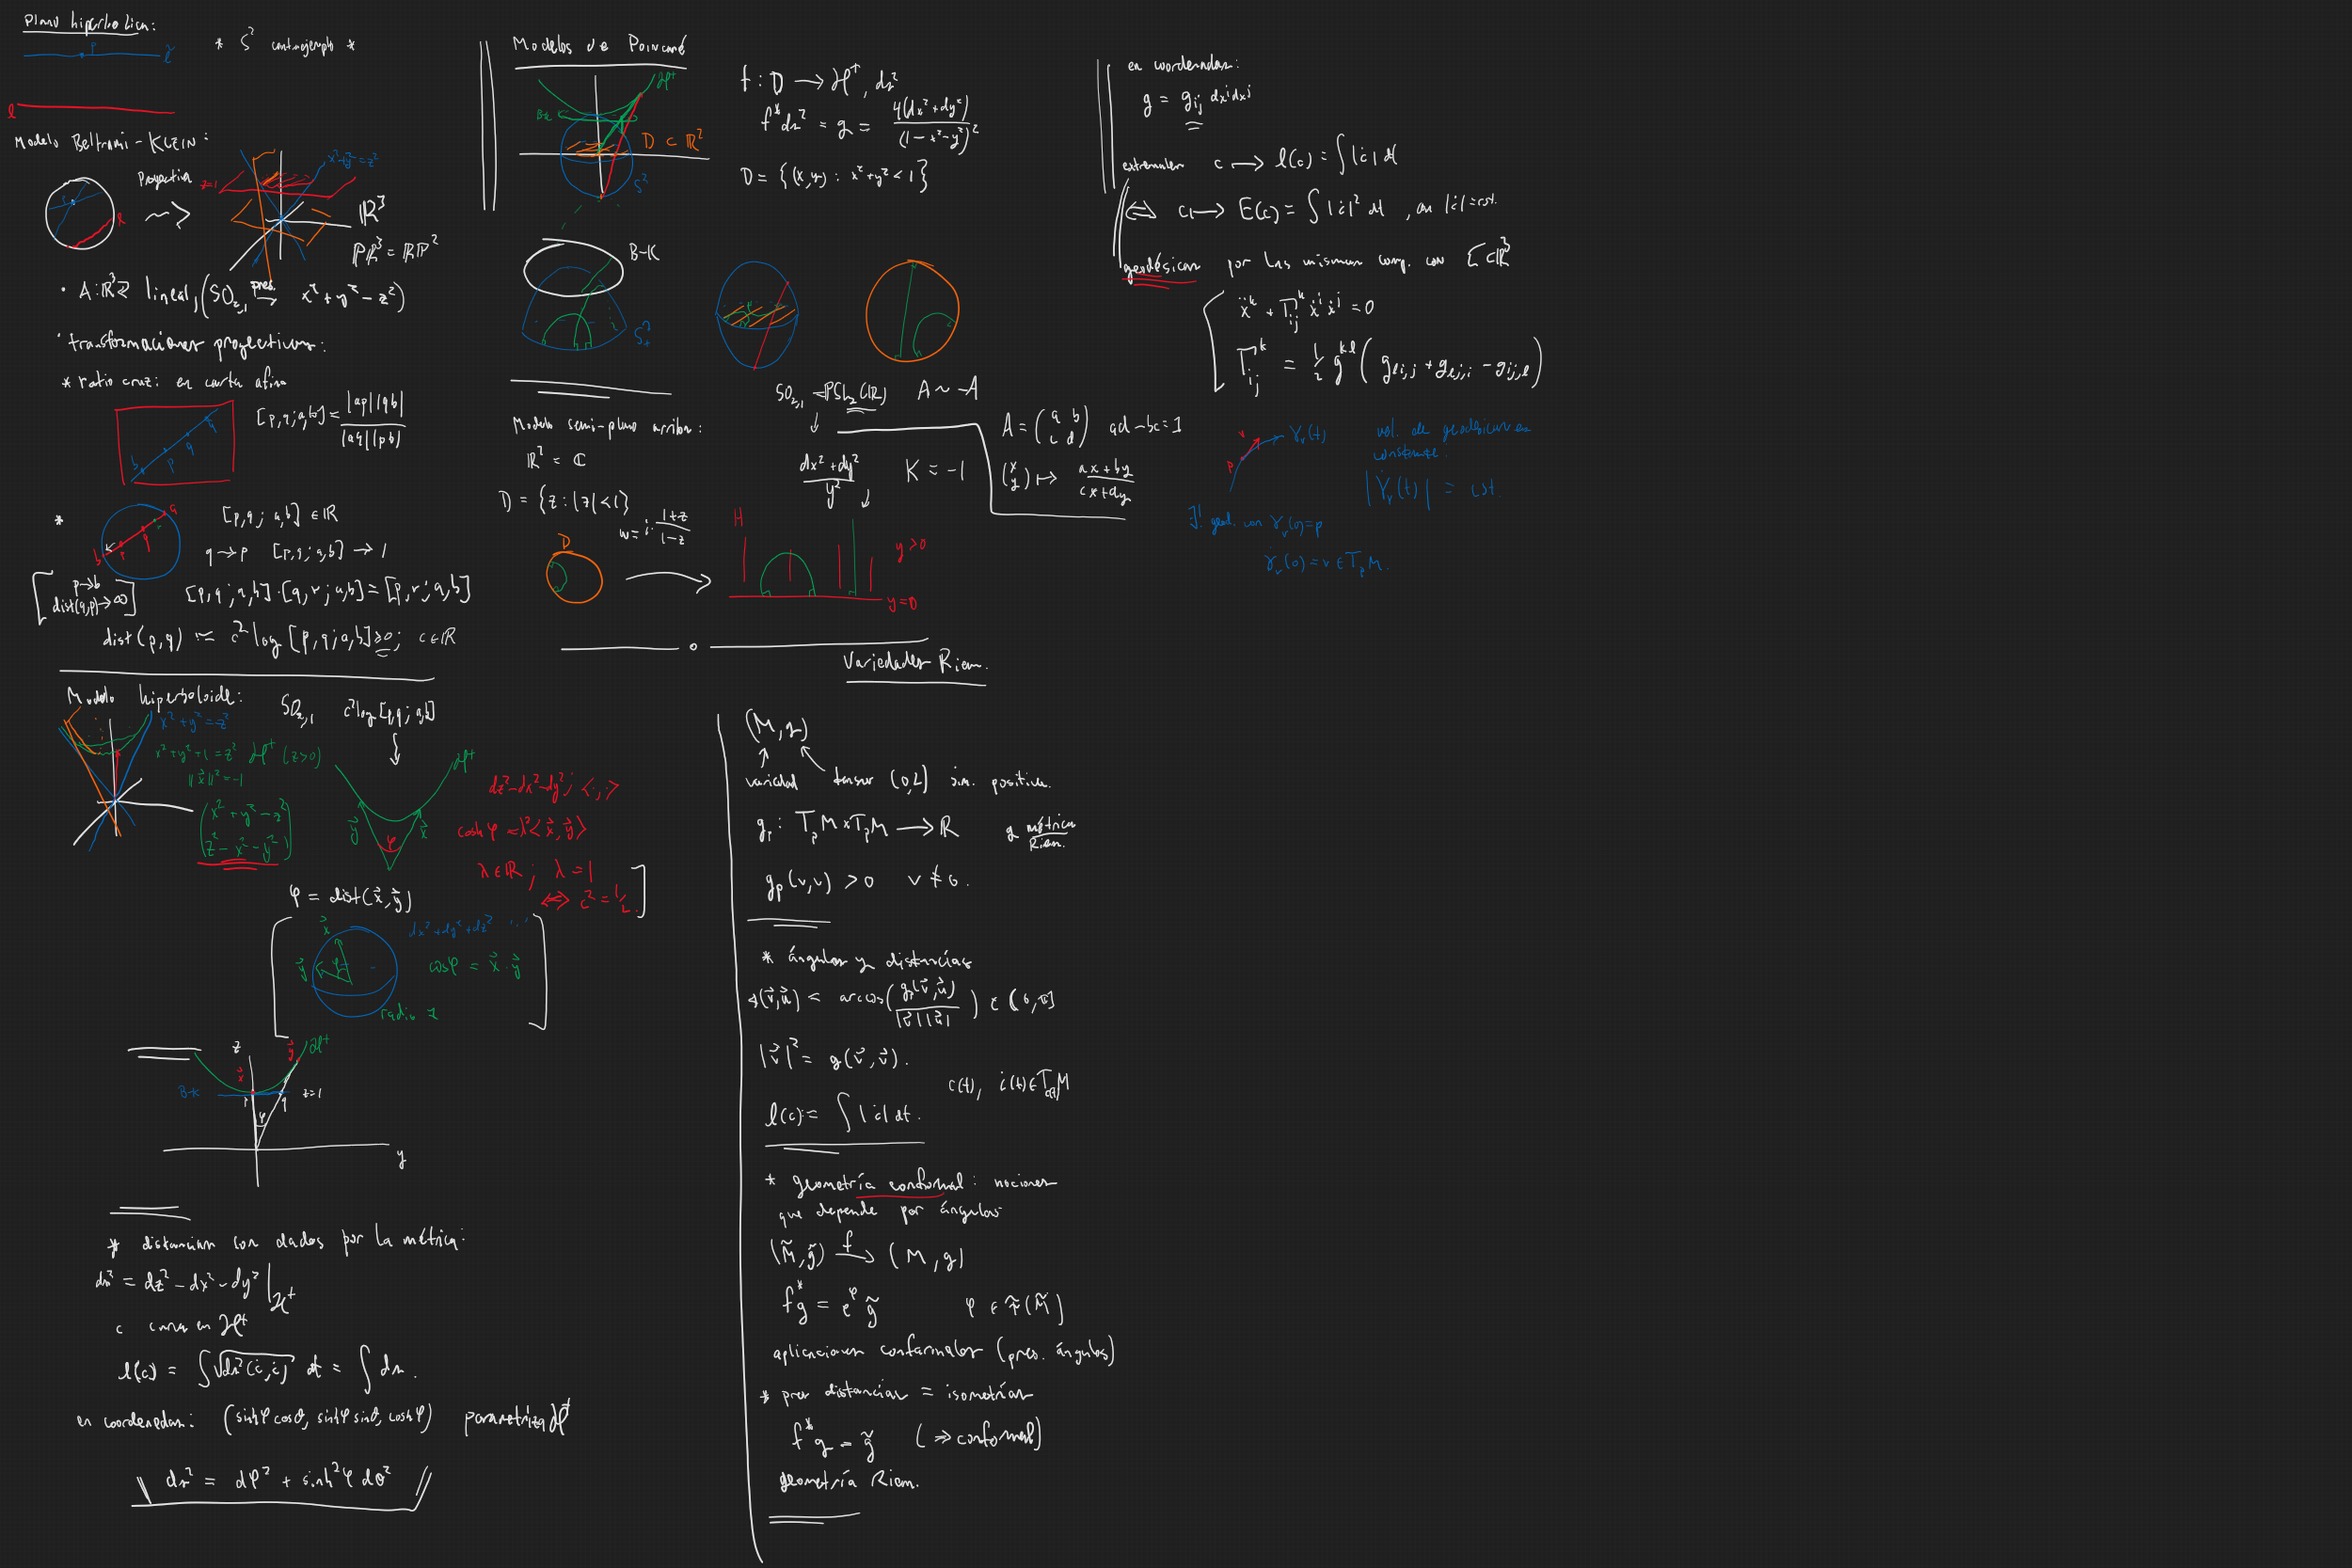 Plano hiperbolico:
* S² contraejemplo *
p
l
Modelo Beltrami-KLEIN:
Proyectiva
x²+y²=z²
z=1
l
ℝ³
Pℝ³ = ℝP²
· A:ℝ³⟲ lineal, (SO₂,₁ pres. → x²+y²-z²)
· transformaciones proyectivas:
* ratio cruz: en carta afín
[p,q;a,b] = |ap||qb| / |aq||pb|
b p q a
* [p,q;a,b] ∈ ℝ
a q p b
q→p [p,q;a,b] → 1
[p→b
dist(q,p)→∞]
[p,q;a,b]·[q,r;a,b] = [p,r;a,b]
dist(p,q) := c² log [p,q;a,b] ≥0; c∈ℝ
Modelo hiperboloide: SO₂,₁ c² log [p,q;a,b]
x²+y²=z²
x²+y²+1=z² ℋ⁺ (z>0)
||x⃗||²=-1
(x²+y²-z²
z²-x²-y²)
ℋ⁺
y⃗ φ x⃗
dz²-dx²-dy²; <·,·>
cosh φ = λ²<x⃗,y⃗>
λ∈ℝ; λ=1
⟺ c²=1/2
φ = dist(x⃗,y⃗)
x⃗
dx²+dy²+dz²
y⃗ φ
cosφ = x⃗·y⃗
radio 1
z y⃗ ℋ⁺
x⃗
B-K p q z=1
φ
y
* distancias son dados por la métrica:
ds² = dz²-dx²-dy² |ℋ⁺
c curva en ℋ⁺
l(c) = ∫√ds²(ċ,ċ) dt = ∫ds.
en coordenadas: (sinhφ cosθ, sinhφ sinθ, coshφ) parametriza ℋ⁺
ds² = dφ² + sinh²φ dθ²
Modelos de Poincaré
ℋ⁺
B-K
D ⊂ ℝ²
S²
f: D → ℋ⁺, ds²
f*ds² = g = 4(dx²+dy²) / (1-x²-y²)²
D = {(x,y): x²+y²<1}
B-K
S²₊
SO₂,₁ = PSL₂(ℝ) A ~ -A
Modelo semi-plano arriba:
ℝ² = ℂ
D = {z: |z|<1}
w = i·(1+z)/(1-z)
D
(dx²+dy²)/y² K = -1
A = (a b
c d) ad-bc=1
(x
y) ↦ (ax+by)/(cx+dy)
H
y>0
y=0
Variedades Riem.
(M,g)
variedad tensor (0,2) sim. positiva.
gₚ: TₚM×TₚM → ℝ g métrica Riem.
gₚ(v,v) > 0 v≠0.
* ángulos y distancias
∡(v⃗,u⃗) = arccos(gₚ(v⃗,u⃗) / |v⃗||u⃗|) ∈ [0,π]
|v⃗|² = g(v⃗,v⃗).
c(t), ċ(t)∈T_c(t)M
l(c) = ∫|ċ| dt.
* geometría conformal: nociones
que depende por ángulos
(M̃,g̃) →f (M,g)
f*g = e^φ g̃ φ ∈ ℱ(M̃)
aplicaciones conformales (pres. ángulos)
* pres distancias = isometrías
f*g = g̃ (⇒ conformal)
geometría Riem.
en coordenadas:
g = gᵢⱼ dxⁱdxʲ
extremales c → l(c) = ∫|ċ| dt
⟺ c → E(c) = ∫|ċ|² dt, con |ċ|=cst.
geodésicas por las mismas comp. con Σ⊂ℝ³
ẍᵏ + Γᵏᵢⱼ ẋⁱẋʲ = 0
Γᵏᵢⱼ = 1/2 gᵏˡ(gₗᵢ,ⱼ + gₗⱼ,ᵢ - gᵢⱼ,ₗ)
v
p
γᵥ(t)
vel. de geodésicas es
constante.
|γ̇ᵥ(t)| = cst.
∃! geod. con γᵥ(0)=p
γ̇ᵥ(0)=v∈TₚM.